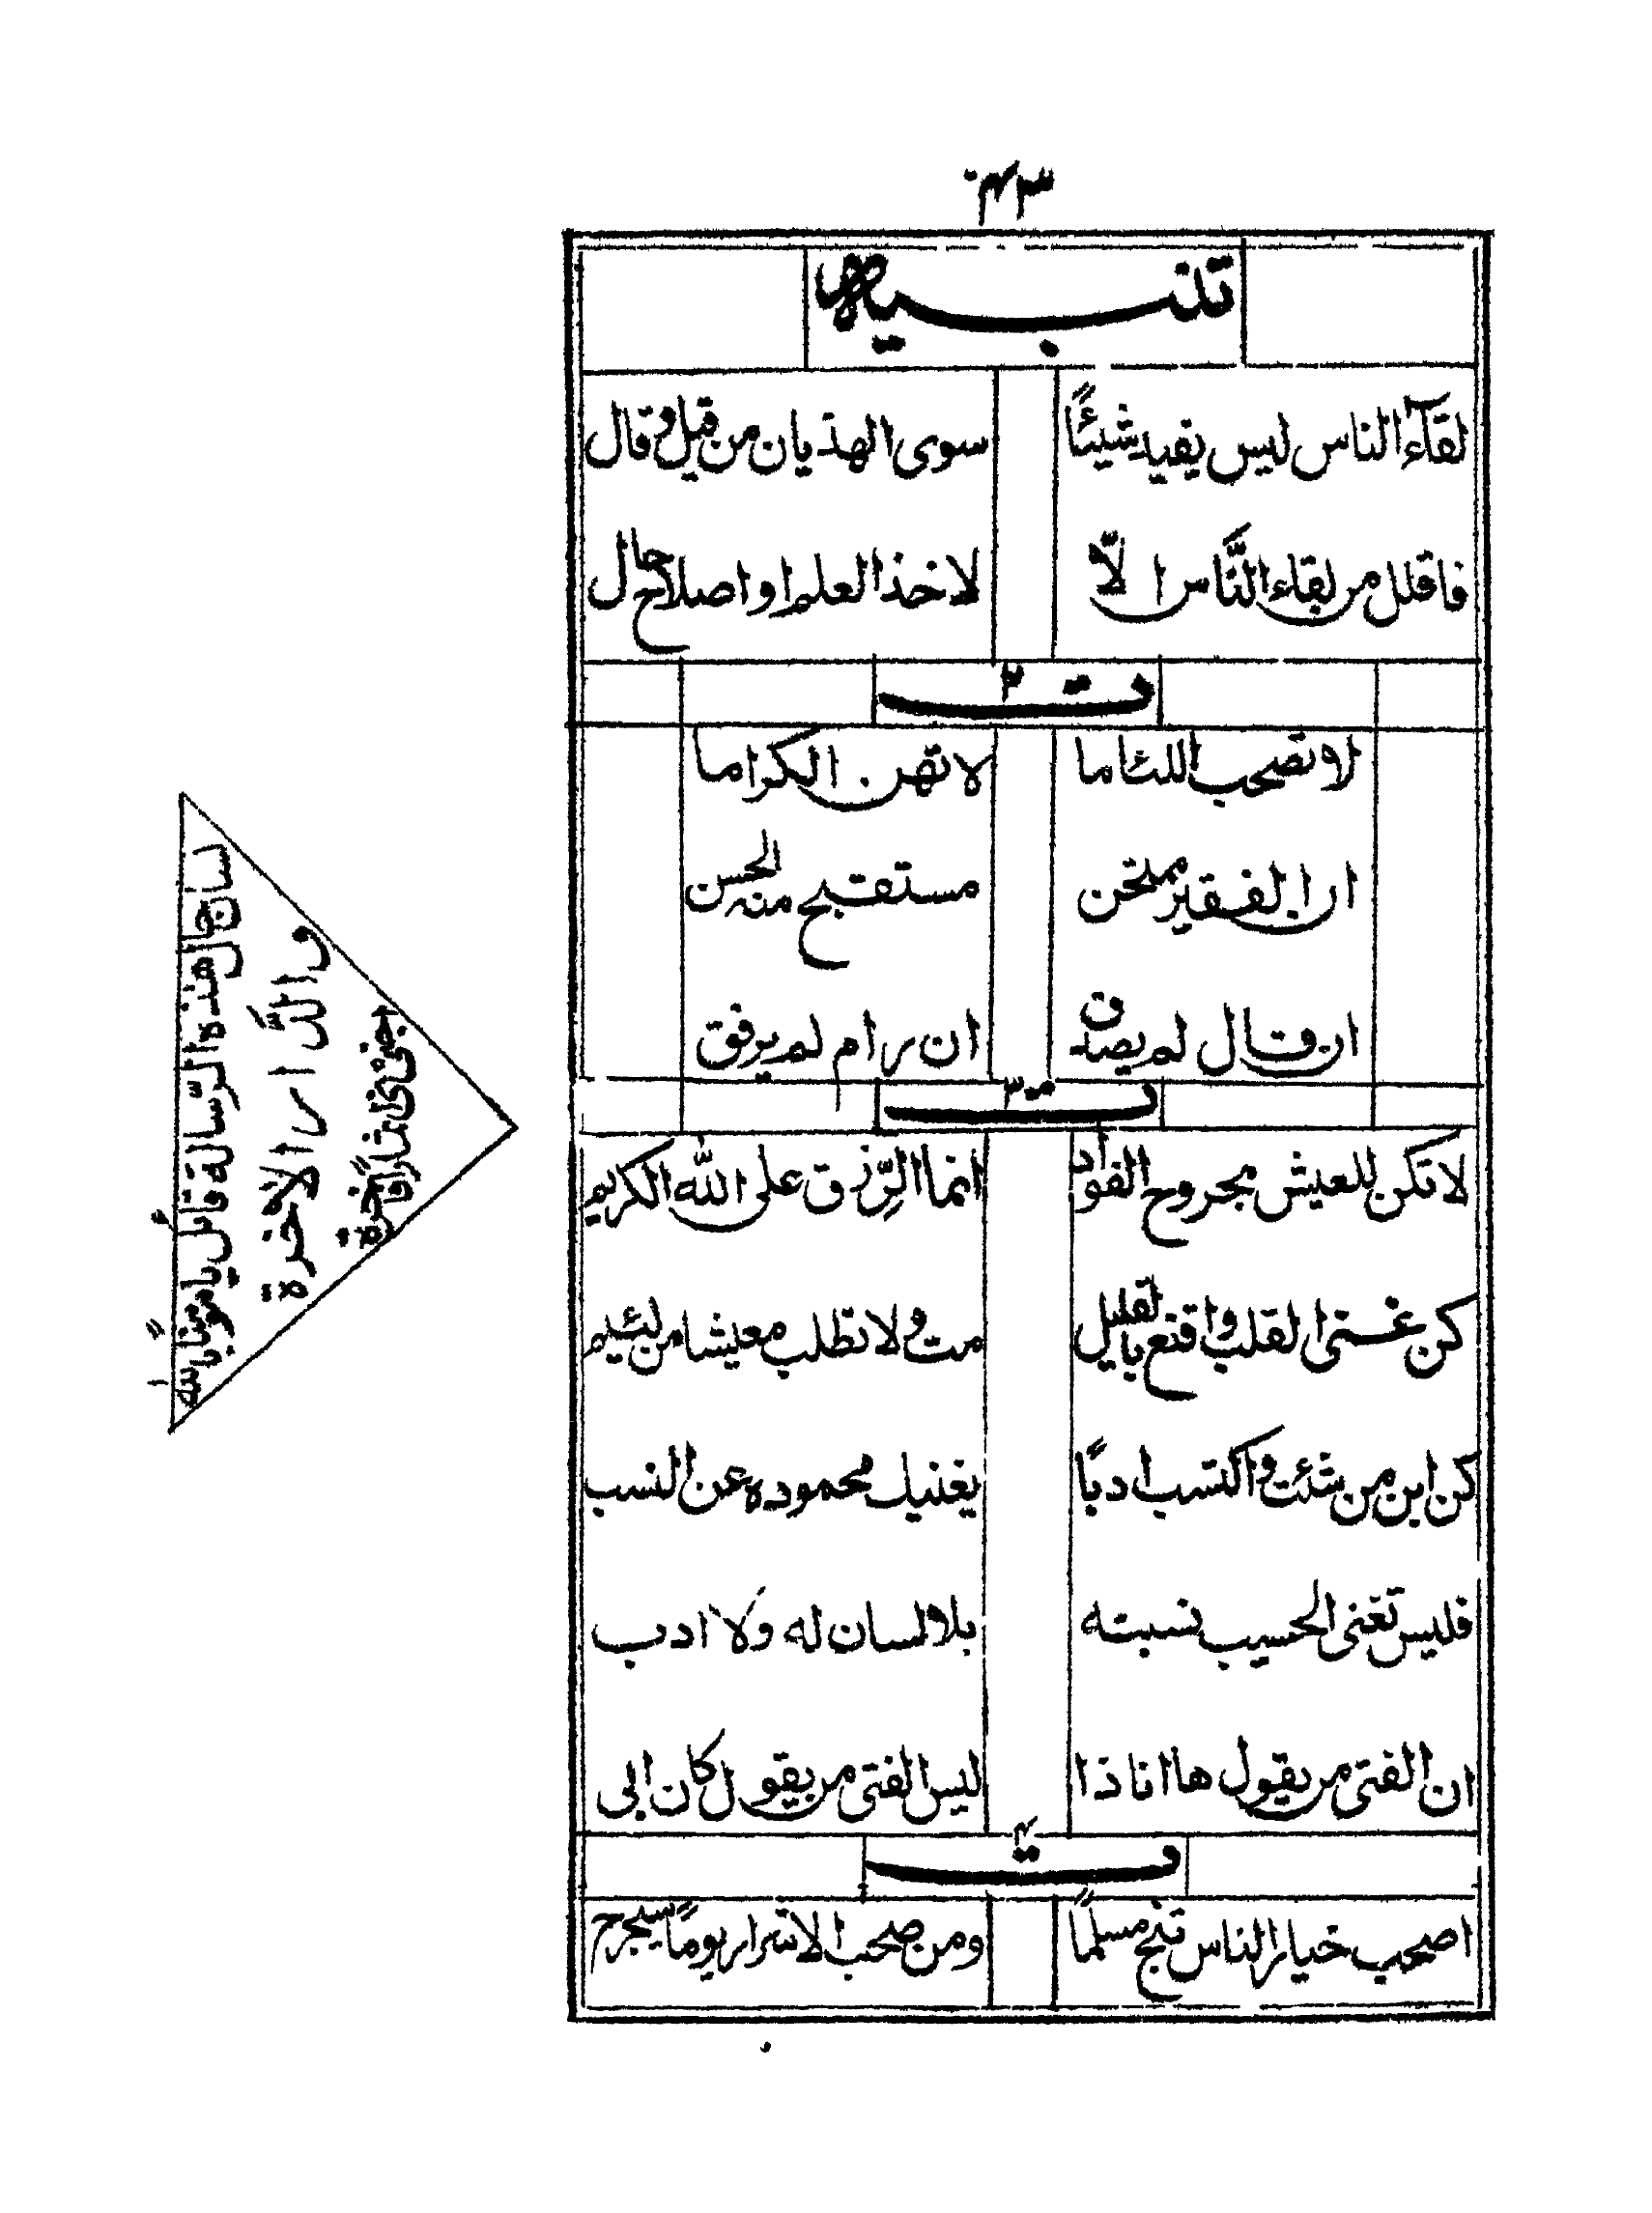 تنبيه
لقآء الناس ليس يفيد شيئًا سوى الهذيان من قيل وقال
فاقلل من لقاء النَّاس الاّ لاخذ العلم او اصلاح حال
ت ٢
لا وتصحب اللئاما لا تهن الكراما
ان الفقير ممتحن مستقبح منه الحسن
ان قال لم يصدق ان رام لم يرفق
ت ٣
لا تكن للعيش مجروح الفواد انما الرّزق على الله الكريم
كن غنى القلب واقنع بالقليل مت ولا تطلب معيشا من لئيم
كن ابن من شئت واكتسب ادبًا يغنيك محموده عن النسب
فليس تغنى الحسيب نسبته بلا لسان له ولا ادب
ان الفتى من يقول ها انا ذا ليس الفتى من يقول كان ابى
اصحب خيار الناس تنج مسلمًا ومن صحب الاشرار يومًا سيجرح
لسان حال هذه الرّسالة قائل يا مؤمنا بالله
والدَّار الآخرة